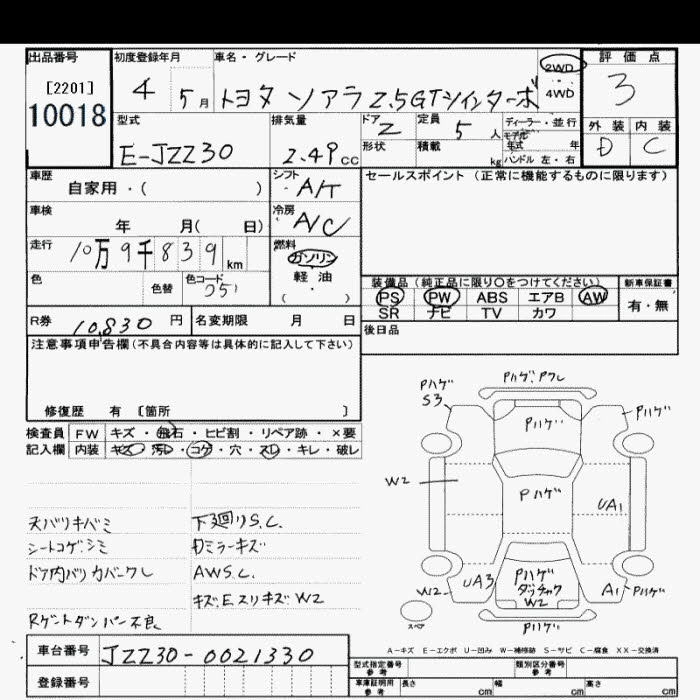 出品番号
[2201]
10018
初度登録年月
4 5月
車名・グレード
トヨタ ソアラ 2.5GTツインターボ
2WD
4WD
評価点
3
外装 内装
D C
型式
E-JZZ30
排気量
2.49cc
ドア
2
定員
5人
形状
積載
kg
ディーラー・並行
モデル
年式 年
ハンドル 左・右
車歴
自家用・( )
シフト
A/T
セールスポイント (正常に機能するものに限ります)
車検
年 月( 日)
冷房
A/C
走行
10万9千839km
燃料
ガソリン
軽油
( )
色
色替
色コード
051
装備品(純正品に限り○をつけてください)
新車保証書
PS PW ABS エアB AW
SR ナビ TV カワ
有・無
R券
10,830円
名変期限 月 日
後日品
注意事項申告欄(不具合内容等は具体的に記入して下さい)
修復歴 有 〔箇所 〕
検査員
記入欄
FW キズ・飛石・ヒビ割・リペア跡・×要
内装 キズ・汚レ・コゲ・穴・スレ・キレ・破レ
天バリキバミ
シートコゲ.シミ
ドア内バリカバークレ
Rゲートダンパー不良
下廻りS.C.
Dミラーキズ
AWS.C.
キズ.E.スリキズ W2
Pハゲ
S3
Pハゲ.Pワレ
Pハゲ
Pハゲ
W2
Pハゲ
UA1
W2
UA3
Pハゲ
W2
A1
Pハゲ
Pハゲ
スペア
A-キズ E-エクボ U-凹み W-補修跡 S-サビ C-腐食 XX-交換済
車台番号
JZZ30-0021330
登録番号
型式指定番号
参考
類別区分番号
参考
車庫証明用
参考
長さ cm
幅 cm
高さ cm